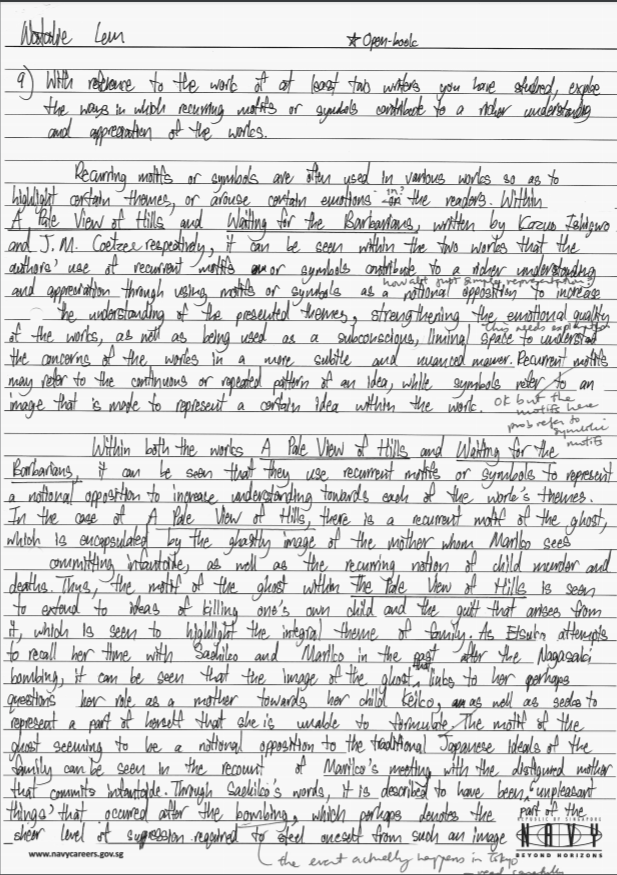 Natalie Lum
☆ Open-book
9) With reference to the work of at least two writers you have studied, explore
the ways in which recurring motifs or symbols contribute to a richer understanding
and appreciation of the works.
Recurring motifs or symbols are often used in various works so as to
highlight certain themes, or arouse certain emotions in? the readers. Within
A Pale View of Hills and Waiting for the Barbarians, written by Kazuo Ishiguro
and J.M. Coetzee respectively, it can be seen within the two works that the
authors' use of recurrent motifs or symbols contribute to a richer understanding
how abt just simply representing?
and appreciation through using motifs or symbols as a notional opposition to increase
the understanding of the presented themes, strengthening the emotional quality
this needs explanation
of the works, as well as being used as a subconscious, liminal space to understand
the concerns of the works in a more subtle and nuanced manner. Recurrent motifs
may refer to the continuous or repeated pattern of an idea, while symbols refer to an
image that is made to represent a certain idea within the work.
OK but the
motifs here
prob refer to
symbolic
motifs
Within both the works A Pale View of Hills and Waiting for the
Barbarians, it can be seen that they use recurrent motifs or symbols to represent
a notional opposition to increase understanding towards each of the work's themes.
In the case of A Pale View of Hills, there is a recurrent motif of the ghost,
which is encapsulated by the ghastly image of the mother whom Mariko sees
committing infantcide, as well as the recurring notion of child murder and
deaths. Thus, the motif of the ghost within The Pale View of Hills is seen
to extend to ideas of killing one's own child and the guilt that arises from
it, which is seen to highlight the integral theme of family. As Etsuko attempts
to recall her time with Sachiko and Mariko in the past after the Nagasaki
bombing, it can be seen that the image of the ghost that links to her perhaps
questions her role as a mother towards her child Keiko, as well as seeks to
represent a part of herself that she is unable to formulate. The motif of the
ghost seeming to be a notional opposition to the traditional Japanese ideals of the
family can be seen in the recount of Mariko's meeting with the disfigured mother
that commits infantcide. Through Sachiko's words, it is described to have been 'unpleasant
things' that occured after the bombing, which perhaps denotes the part of the
sheer level of supression required to steel oneself from such an image
the event actually happens in Tokyo
- read carefully
www.navycareers.gov.sg
REPUBLIC OF SINGAPORE
NAVY
BEYOND HORIZONS